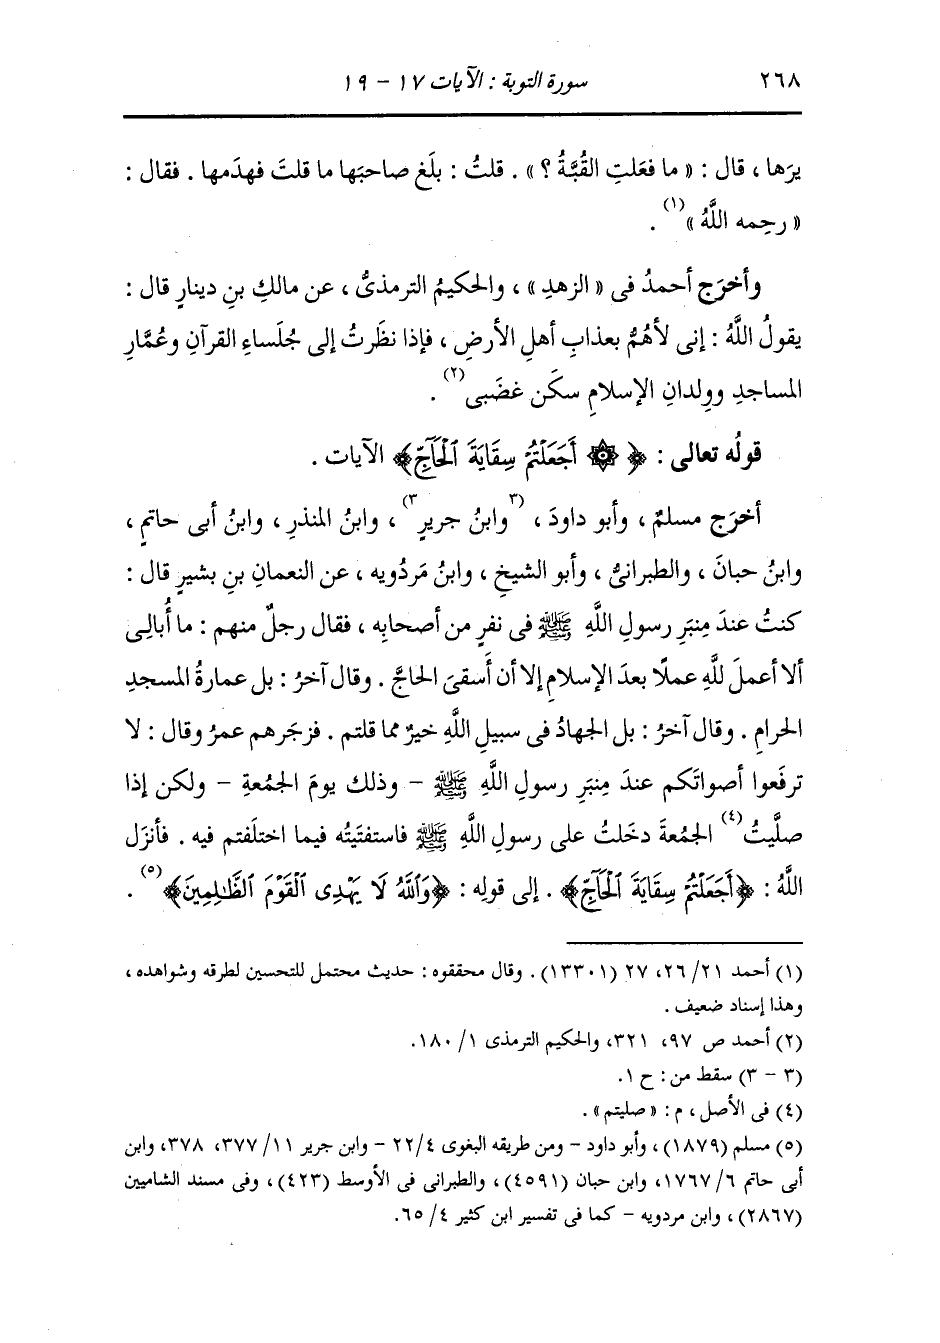 ٢٦٨ سورة التوبة : الآيات ١٧ - ١٩
يرَها ، قال : « ما فعَلتِ القُبَّةُ ؟ » . قلتُ : بلَغ صاحبَها ما قلتَ فهدَمها . فقال :
« رحِمه اللَّهُ »(١) .
وأخرَج أحمدُ فى « الزهدِ » ، والحكيمُ الترمذىُّ ، عن مالكِ بنِ دينارٍ قال :
يقولُ اللَّهُ : إنى لأهُمُّ بعذابِ أهلِ الأرضِ ، فإذا نظَرتُ إلى جُلَساءِ القرآنِ وعُمَّارِ
المساجدِ ووِلدانِ الإسلامِ سكَن غضَبى(٢) .
قولُه تعالى : ﴿ ۞ أَجَعَلْتُمْ سِقَايَةَ ٱلْحَآجِّ﴾ الآيات .
أخرَج مسلمٌ ، وأبو داودَ ، (٣وابنُ جريرٍ٣) ، وابنُ المنذرِ ، وابنُ أبى حاتمٍ ،
وابنُ حبانَ ، والطبرانىُّ ، وأبو الشيخِ ، وابنُ مَردُويه ، عن النعمانِ بنِ بشيرٍ قال :
كنتُ عندَ مِنبَرِ رسولِ اللَّهِ ﷺ فى نفرٍ من أصحابِه ، فقال رجلٌ منهم : ما أُبالِى
ألا أعملَ للَّهِ عملًا بعدَ الإسلامِ إلا أن أَسقىَ الحاجَّ . وقال آخرُ : بل عمارةُ المسجدِ
الحرامِ . وقال آخرُ : بل الجهادُ فى سبيلِ اللَّهِ خيرٌ مما قلتم . فزجَرهم عمرُ وقال : لا
ترفَعوا أصواتَكم عندَ مِنبَرِ رسولِ اللَّهِ ﷺ - وذلك يومَ الجمُعةِ - ولكن إذا
صلَّيتُ(٤) الجمُعةَ دخَلتُ على رسولِ اللَّهِ ﷺ فاستفتَيتُه فيما اختلَفتم فيه . فأنزَل
اللَّهُ : ﴿أَجَعَلْتُمْ سِقَايَةَ ٱلْحَآجِّ﴾ . إلى قولِه : ﴿وَٱللَّهُ لَا يَهْدِى ٱلْقَوْمَ ٱلظَّـٰلِمِينَ﴾(٥) .
(١) أحمد ٢١/ ٢٦، ٢٧ (١٣٣٠١) . وقال محققوه : حديث محتمل للتحسين لطرقه وشواهده ،
وهذا إسناد ضعيف .
(٢) أحمد ص ٩٧، ٣٢١، والحكيم الترمذى ١/ ١٨٠.
(٣ - ٣) سقط من : ح ١.
(٤) فى الأصل ، م : « صليتم » .
(٥) مسلم (١٨٧٩) ، وأبو داود - ومن طريقه البغوى ٤/ ٢٢ - وابن جرير ١١/ ٣٧٧، ٣٧٨، وابن
أبى حاتم ٦/ ١٧٦٧، وابن حبان (٤٥٩١) ، والطبرانى فى الأوسط (٤٢٣) ، وفى مسند الشاميين
(٢٨٦٧) ، وابن مردويه - كما فى تفسير ابن كثير ٤/ ٦٥.